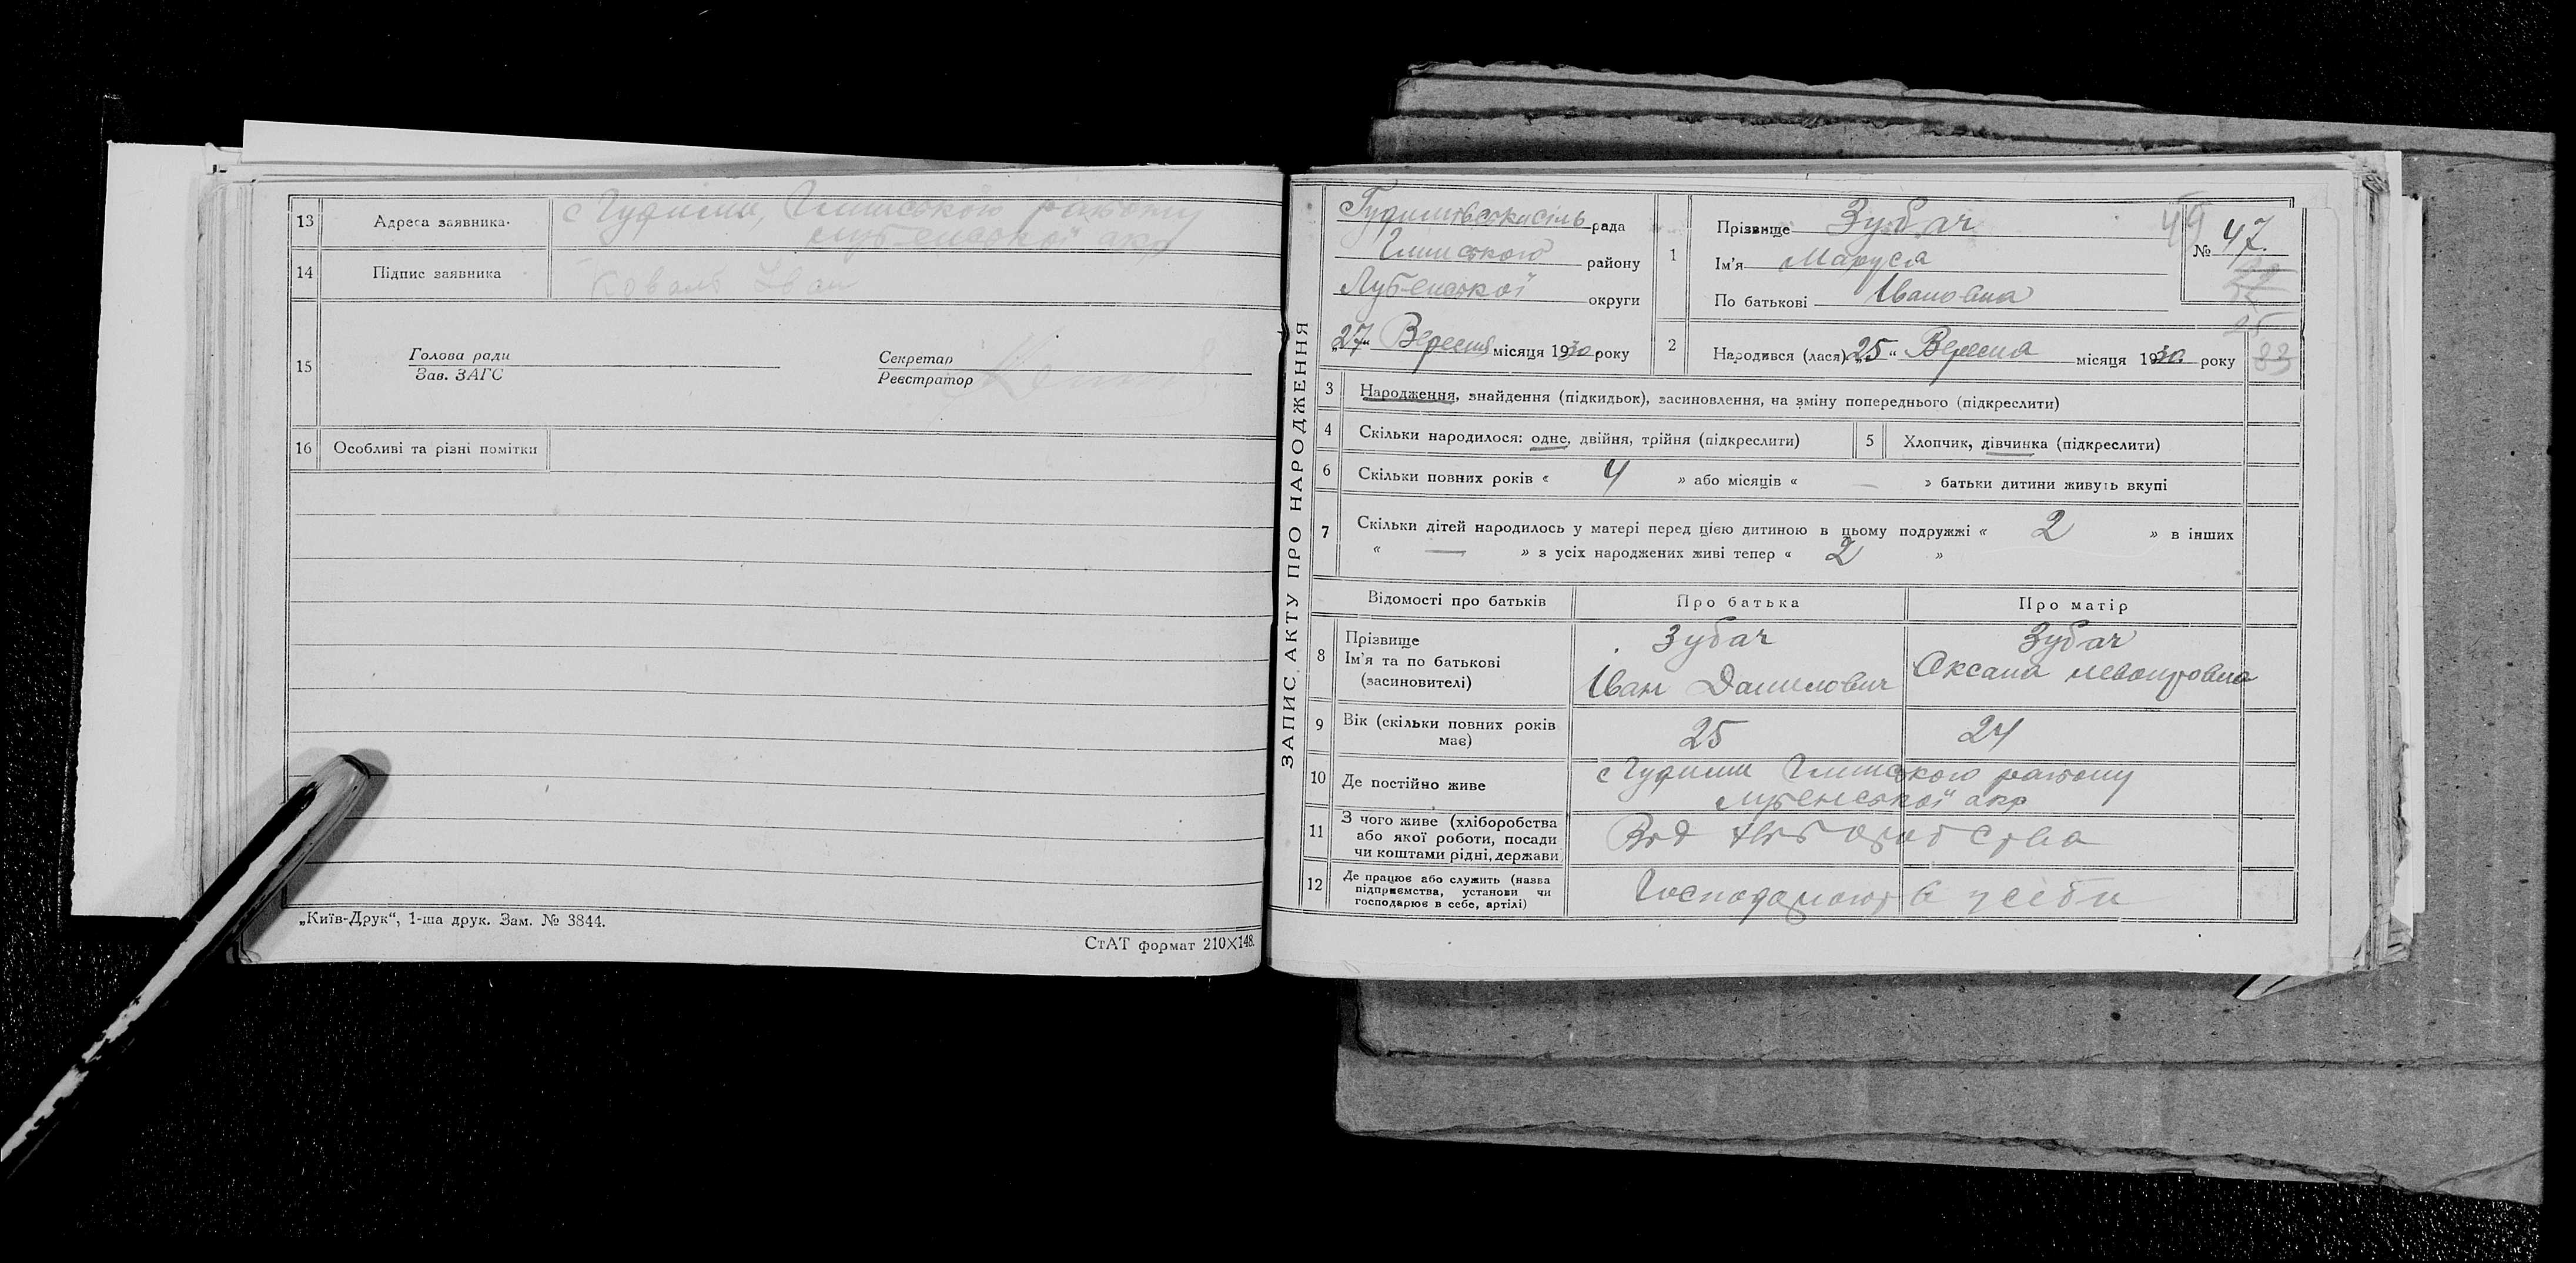 13 Адреса заявника с Гудими, Глинського району
Лубенської окр
14 Підпис заявника Коваль Іван
15 Голова ради Секретар
Зав. ЗАГС Реєстратор
16 Особливі та різні помітки
„Київ-Друк“, 1-ша друк. Зам. № 3844.
СтАТ формат 210×148.
ЗАПИС АКТУ ПРО НАРОДЖЕННЯ
Гудимівська сіль рада
Глинського району
Лубенської округи
„27“ Вересня місяця 1930 року
1 Прізвище Зубач
Ім'я Маруся
По батькові Івановна
49
№ 47.
2 Народився (лася) „25“ Вересня місяця 1930 року
3 Народження, знайдення (підкидьок), засиновлення, на зміну попереднього (підкреслити)
4 Скільки народилося: одне, двійня, трійня (підкреслити) 5 Хлопчик, дівчинка (підкреслити)
6 Скільки повних років « 4 » або місяців « — » батьки дитини живуть вкупі
7 Скільки дітей народилось у матері перед цією дитиною в цьому подружжі « 2 » в інших
« — » з усіх народжених живі тепер « 2 »
Відомості про батьків Про батька Про матір
8 Прізвище
Ім'я та по батькові
(засиновителі)
Зубач
Іван Данилович
Зубач
Оксана
9 Вік (скільки повних років
має)
25 24
10 Де постійно живе с Гудими Глинського району
Лубенської окр
11 З чого живе (хліборобства
або якої роботи, посади
чи коштами рідні, держави
Від хліборобства
12 Де працює або служить (назва
підприємства, установи чи
господарює в себе, артілі)
Господарюют в себи